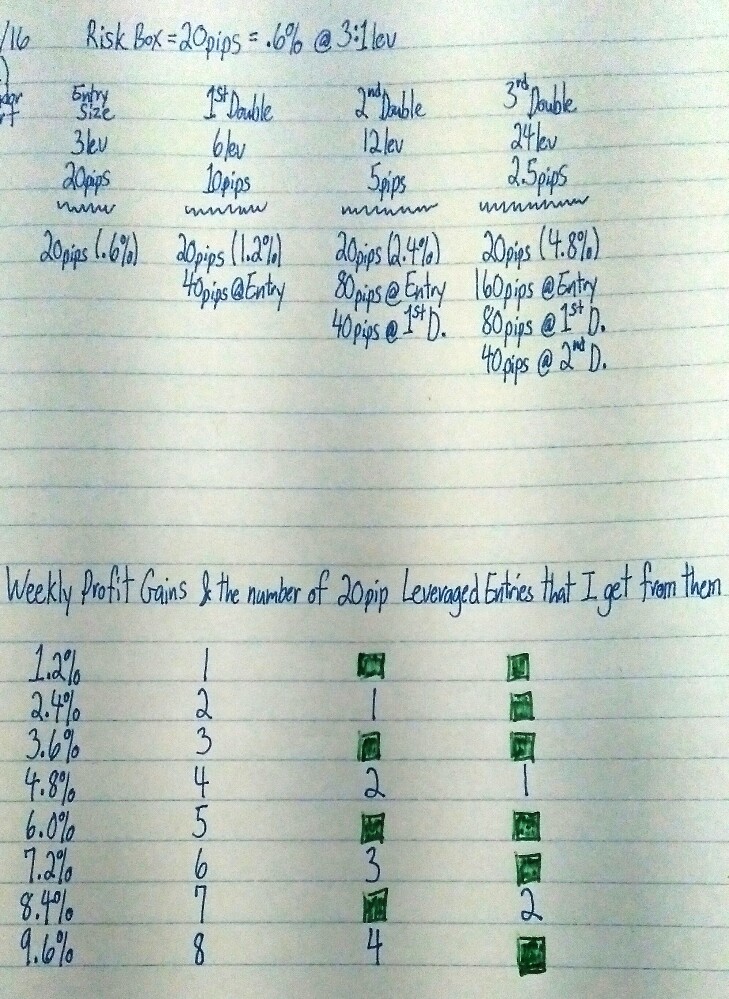 /16 Risk Box = 20pips = .6% @ 3:1 lev
Entry Size 1st Double 2nd Double 3rd Double
3lev 6lev 12lev 24lev
20pips 10pips 5pips 2.5pips
20pips (.6%) 20pips (1.2%) 20pips (2.4%) 20pips (4.8%)
40pips @ Entry 80pips @ Entry 160pips @ Entry
40pips @ 1st D. 80pips @ 1st D.
40pips @ 2nd D.
Weekly Profit Gains & the number of 20pip Leveraged Entries that I get from them
1.2% 1
2.4% 2 1
3.6% 3
4.8% 4 2 1
6.0% 5
7.2% 6 3
8.4% 7 2
9.6% 8 4